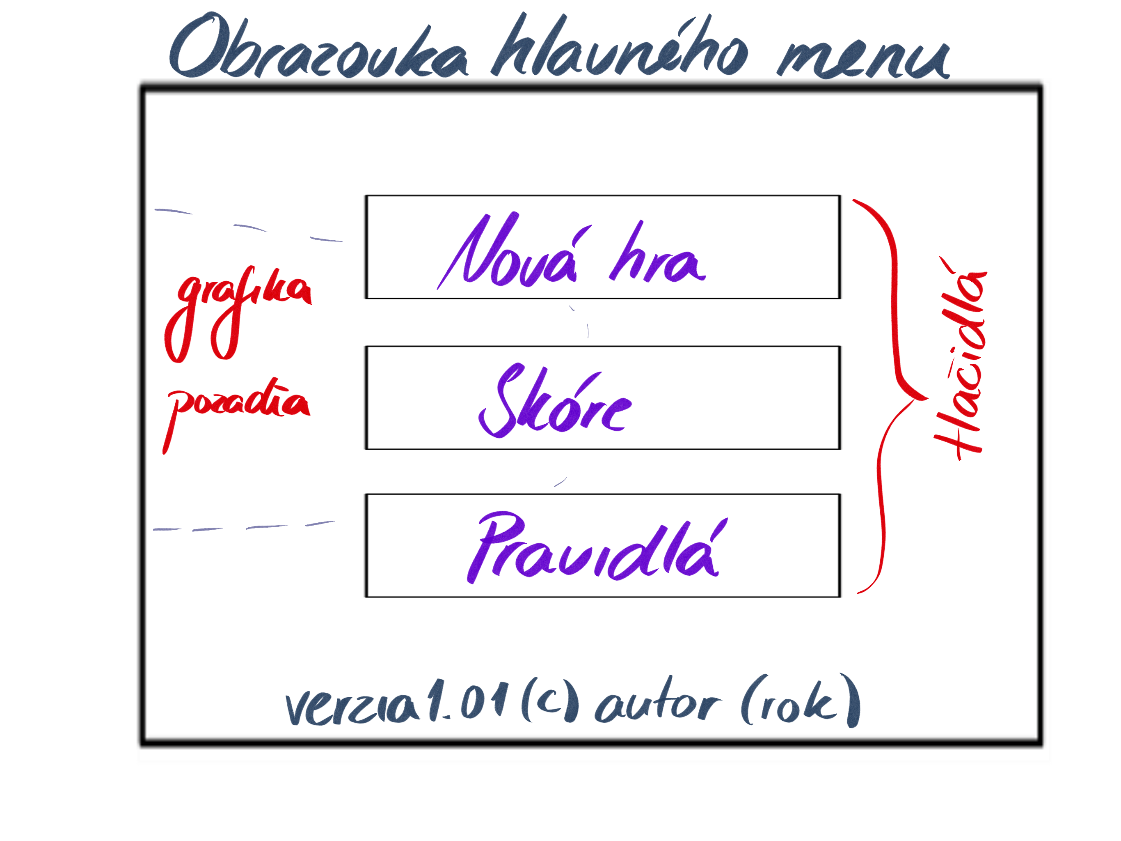 Obrazovka hlavného menu
Nová hra
grafika
pozadia
Skóre
Pravidlá
Hačidlá
verzia 1.01 (c) autor (rok)